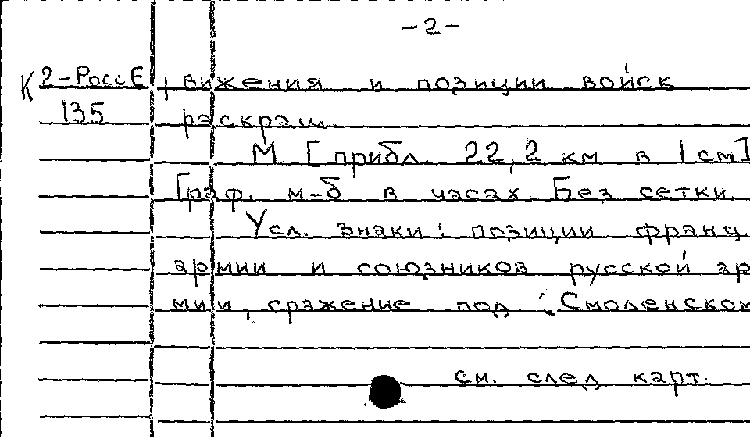 -2-
К 2-РоссЕ вижения и позиции войск
135 раскраш.
М [прибл. 22,2 км в 1 см]
Граф. м-б в часах Без сетки
Усл. знаки: позиции франц.
армии и союзников русской ар
мии, сражение под Смоленском
см. след карт.